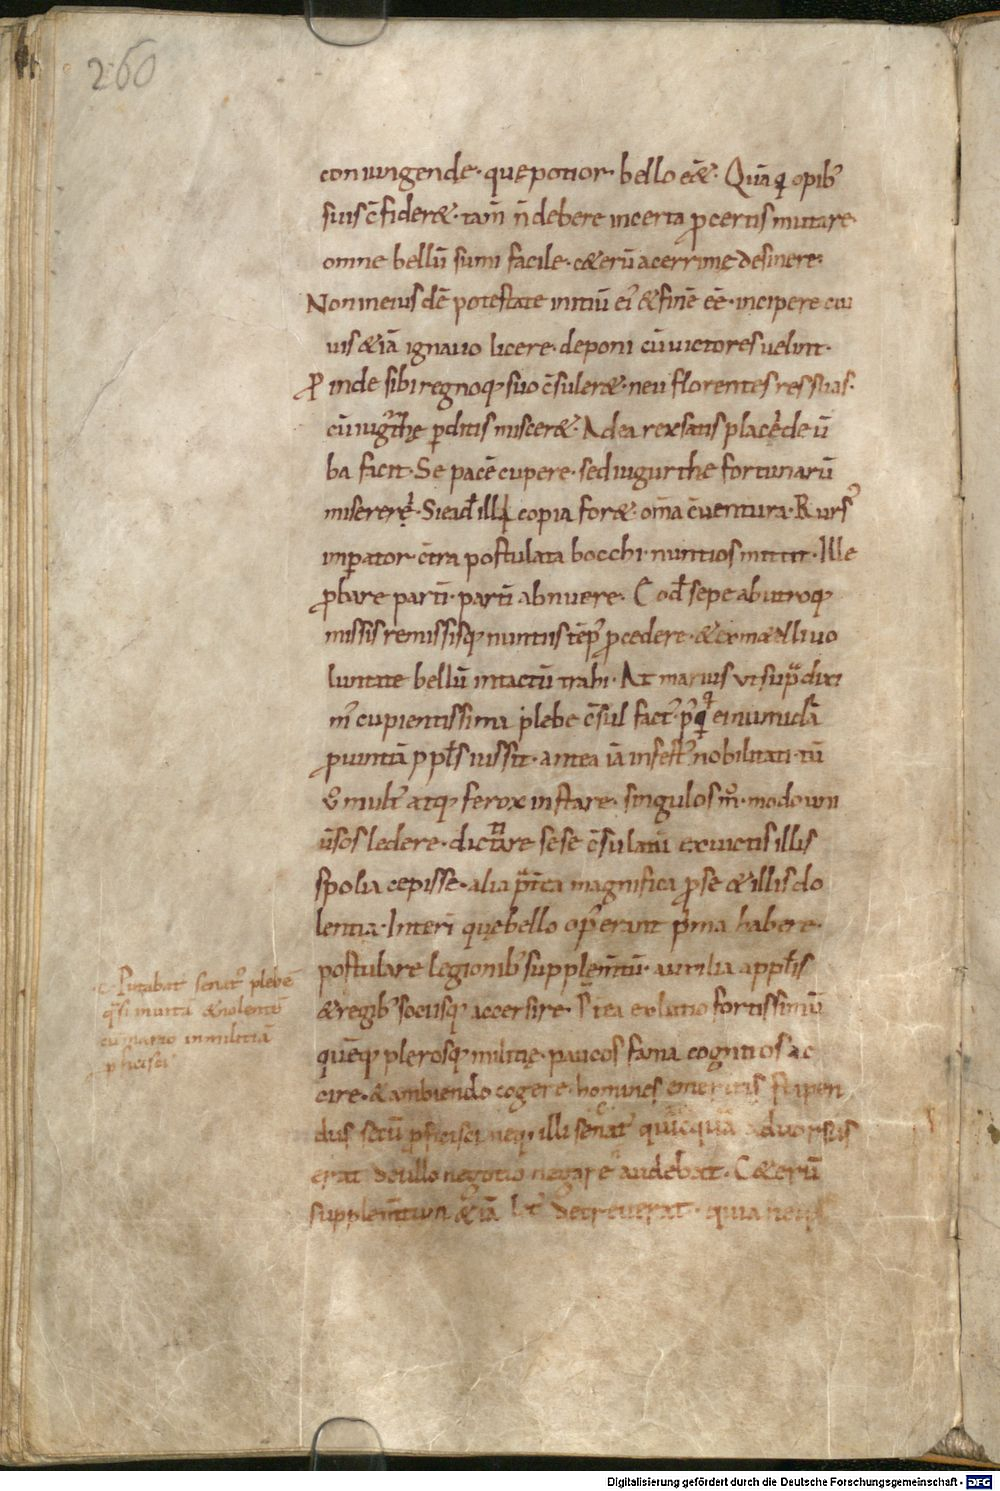 260
coniungendę· quę potior· bello eēt. Quāq opib;
suis c̄fideret· tam̄ n̄ debere incerta p̄ certis mutare
omne bellū sumi facile· cęterū acerrimę desinere·
Non in eiusdē potestate initiū ei' & finē eē· incipere cui
uis & iā ignauo licere· deponi cū uictores uelint·
Proinde sibi regnoq; suo c̄suleret· neu florentes res suas·
cū iugurthę pditis misceret· Ad ea rex satis placide ū
ba facit· Se pacē cupere· sed iugurthe fortunarū
misereri· Si eadē illi copia foret· om̄a c̄uentura· Rurs'
imperator c̄tra postulata bocchi nuntios mittit· Ille
p̄bare parti· parti abnuere· Eo d̄ sepe ab utroq;
missis remissisq; nuntiis tēp' p̄cedere· & ex metelli uo
luntate bellū intactū trahi· At marius ut sup̄ dixi
m' cupientissima plebe c̄sul fact' p'qā ei numidiā
p̄uintiā ppl's iussit· antea iā infest' nobilitati· tū
ū mult' atq; ferox instare· singulos m°· modo uni
ūsos ledere· dictare sese c̄sulatū ex uictis illis
spolia cepisse· alia p̄tea magnifica p̄ se & illis do
lentia· Interi quę bello op' erant p̄ma habere·
postulare legionib; supplemtū· auxilia a ppl'is
& regib; sociisq; accersire· P̄tea ex latio fortissimū
quēq; plerosq; militię· paucos fama cognitos ac
cire· & ambiendo cogere· homines emeritis stipen
diis secū p̄ficisci neq; illi senat' quicquā aduorsus
erat de ullo negotio negare audebat· Ceterū
supplemtum & iā let' decreuerat· quia neq;
Putabat senat' plebē
qsi inuitā & nolentē
cū mario in militiā
p̄ficisci
Digitalisierung gefördert durch die Deutsche Forschungsgemeinschaft - DFG